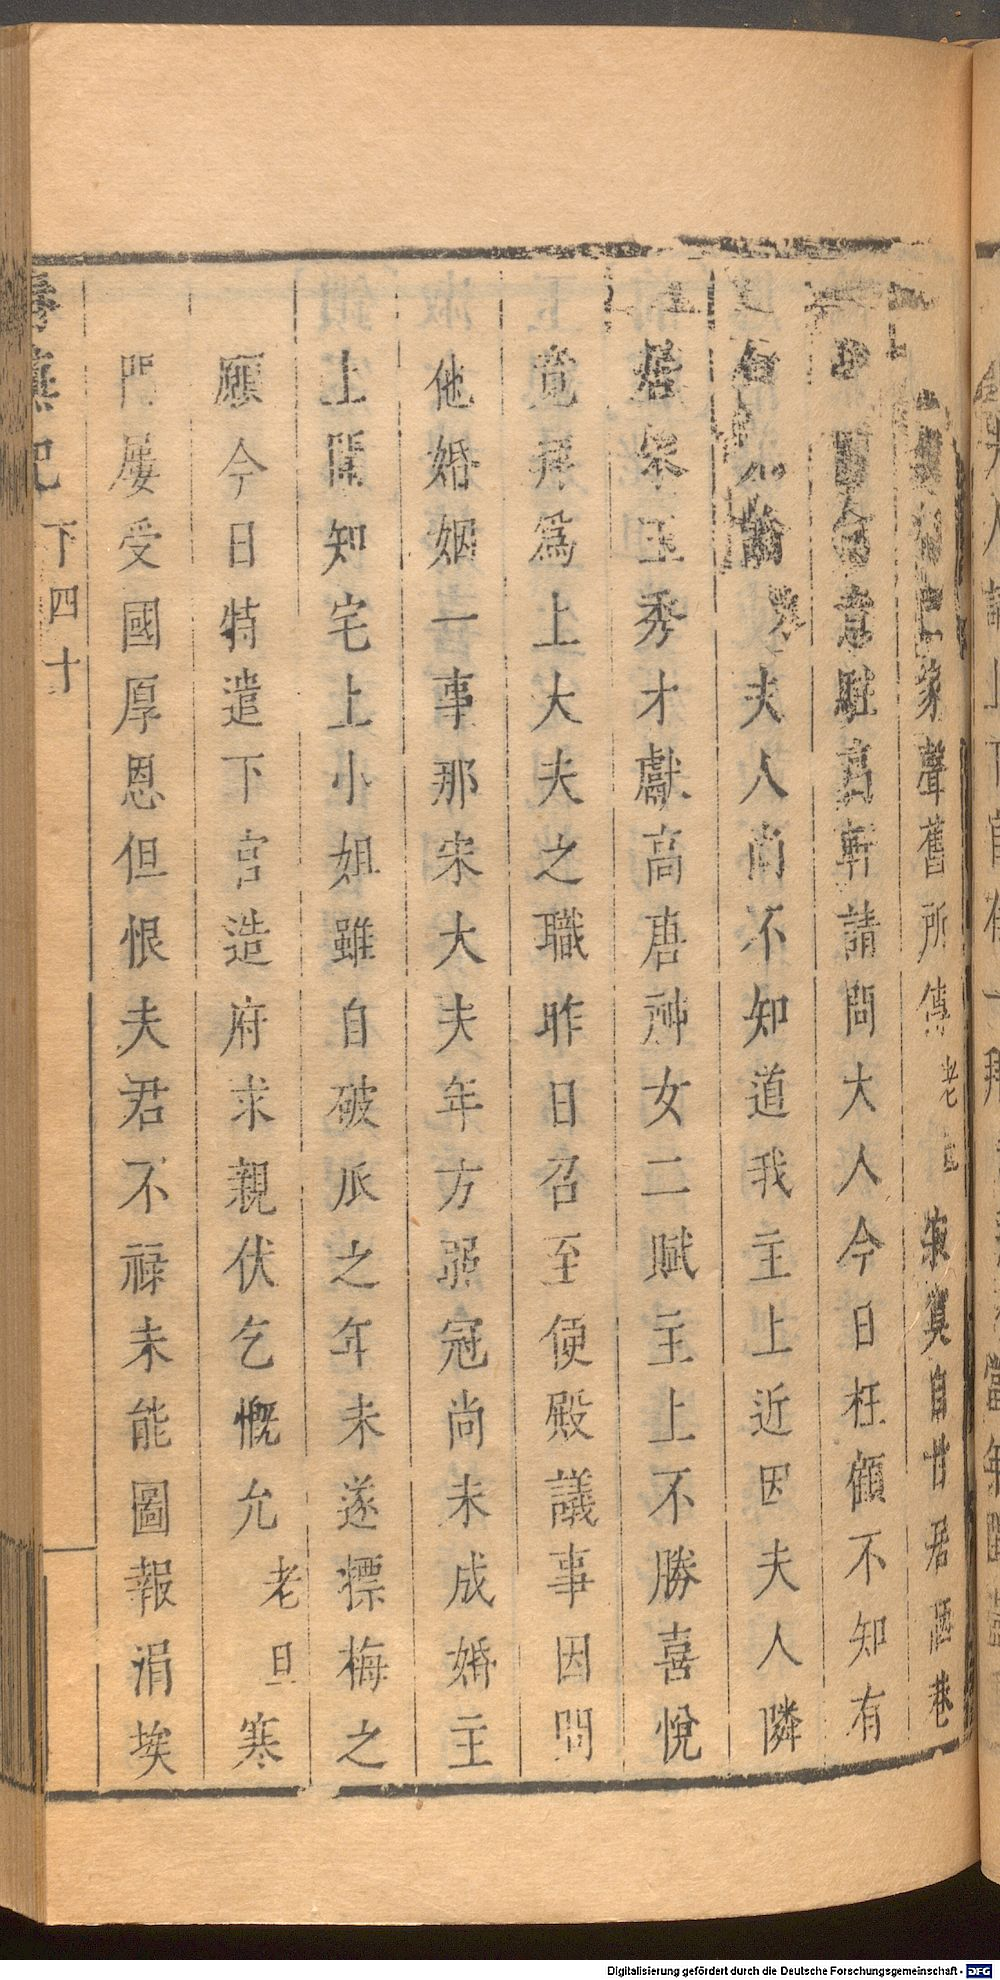 家聲舊所傳老旦寂寞自甘居陋巷
意駐高軒請問大人今日枉顧不知有
何 諭 夫人尚不知道我主上近因夫人隣
居宋玉秀才獻高唐神女二賦主上不勝喜悅
竟拜爲上大夫之職昨日召至便殿議事因問
他婚姻一事那宋大夫年方弱冠尚未成婚主
上聞知宅上小姐雖自破瓜之年未遂摽梅之
應今日特遣下官造府求親伏乞慨允老旦寒
門屢受國厚恩但恨夫君不祿未能圖報涓埃
記 下 四十
Digitalisierung gefördert durch die Deutsche Forschungsgemeinschaft - DFG